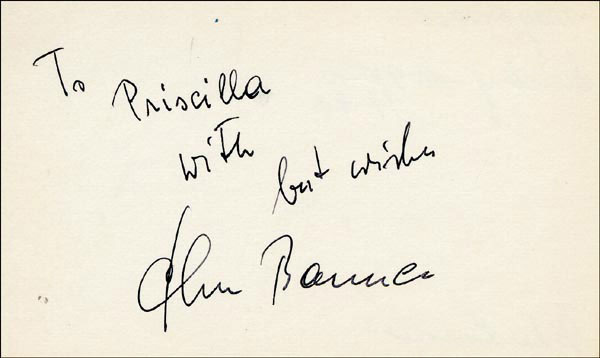 To Priscilla
with
best wishes
John Banner